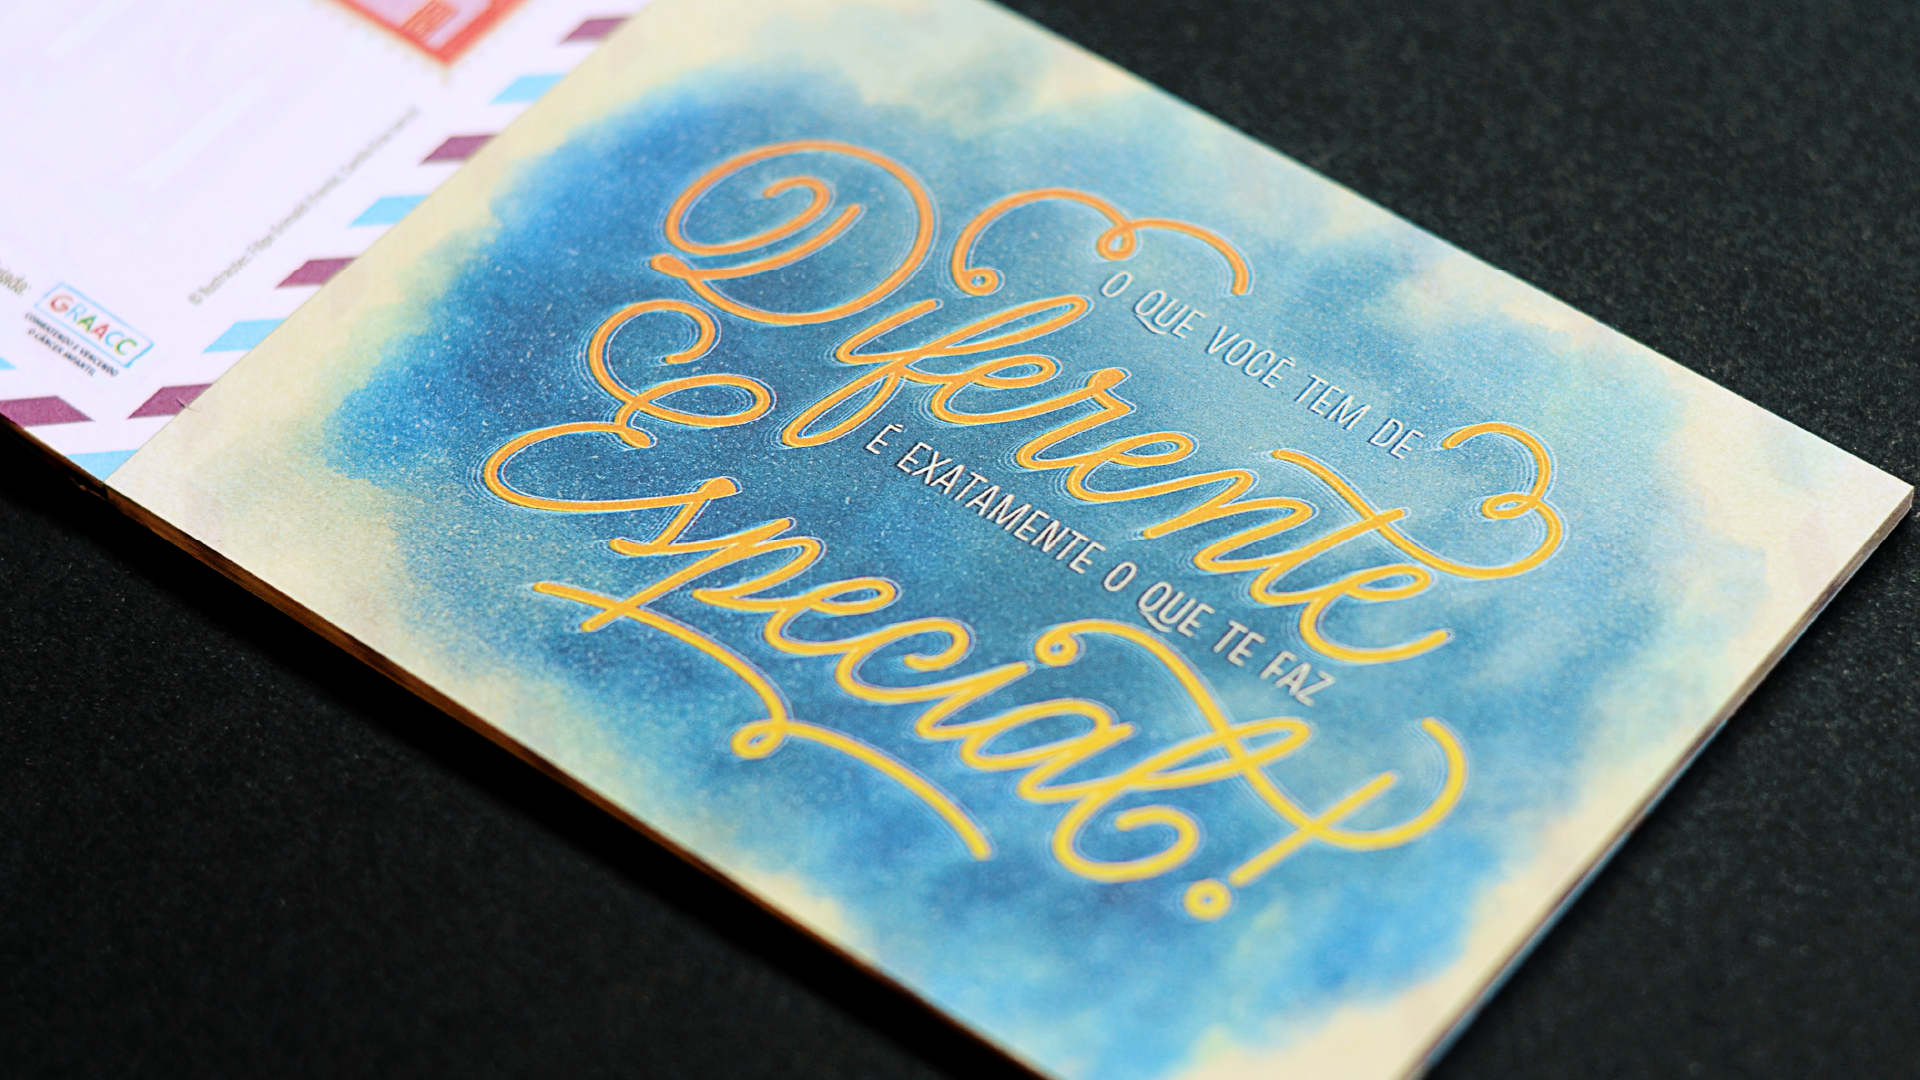 O QUE VOCÊ TEM DE
Diferente
É EXATAMENTE O QUE TE FAZ
Especial!
GRAACC
COMBATENDO E VENCENDO
O CÂNCER INFANTIL